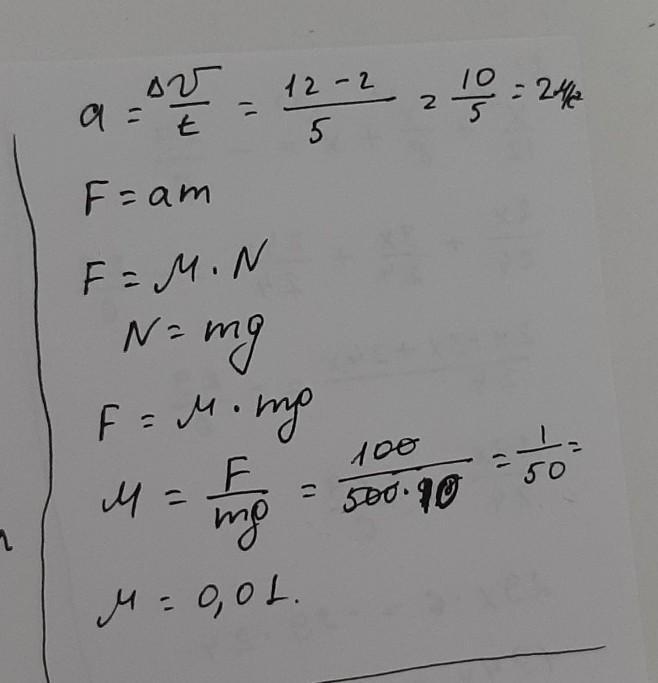 a = Δv/t = 12-2/5 = 10/5 = 2 м/с
F = am
F = μ · N
N = mg
F = μ · mg
μ = F/mg = 100/500·10 = 1/50 =
μ = 0,01.